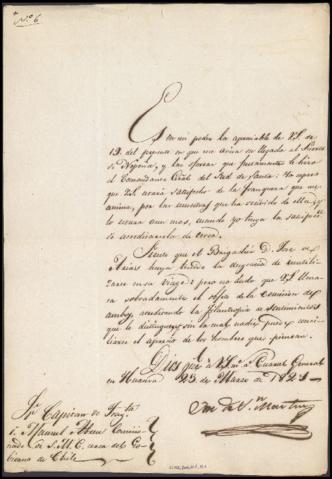 N.o 6
Es en mi poder la apreciable de V.S. de
19. del presente en que me avisa su llegada al Puerto
de y las ofertas que francamente le hizo
el Comandante Gral. del Sud de No espero
que V.S. estará satisfecho de la franqueza que me
anima, por las muestras que ha recibido de ella, y
lo estará aun mas, cuando yo tenga la satisfac.n
de acreditarsela de cerca.
Siento que el Brigadier D. Jose de
Arias haya tenido la desgracia de inutili-
zarse en su viage; pero no dudo que V.S. llena-
ra sobradamente el objeto de la Comision de
ambos, acreditando la filantropia de sentimientos
que le distinguen, sin la cual nadie puede conci-
liarse el aprecio de los hombres que piensan.
Dios gue. à V.S. m.s a.s Cuartel General
en Huaura 25 de Marzo de 1821
Jose de S.n Martin
Sr. Capitan de Frag.ta
D. Manuel Abreu Comisio-
nado de S.M.C. cerca del Go-
bierno de Chile